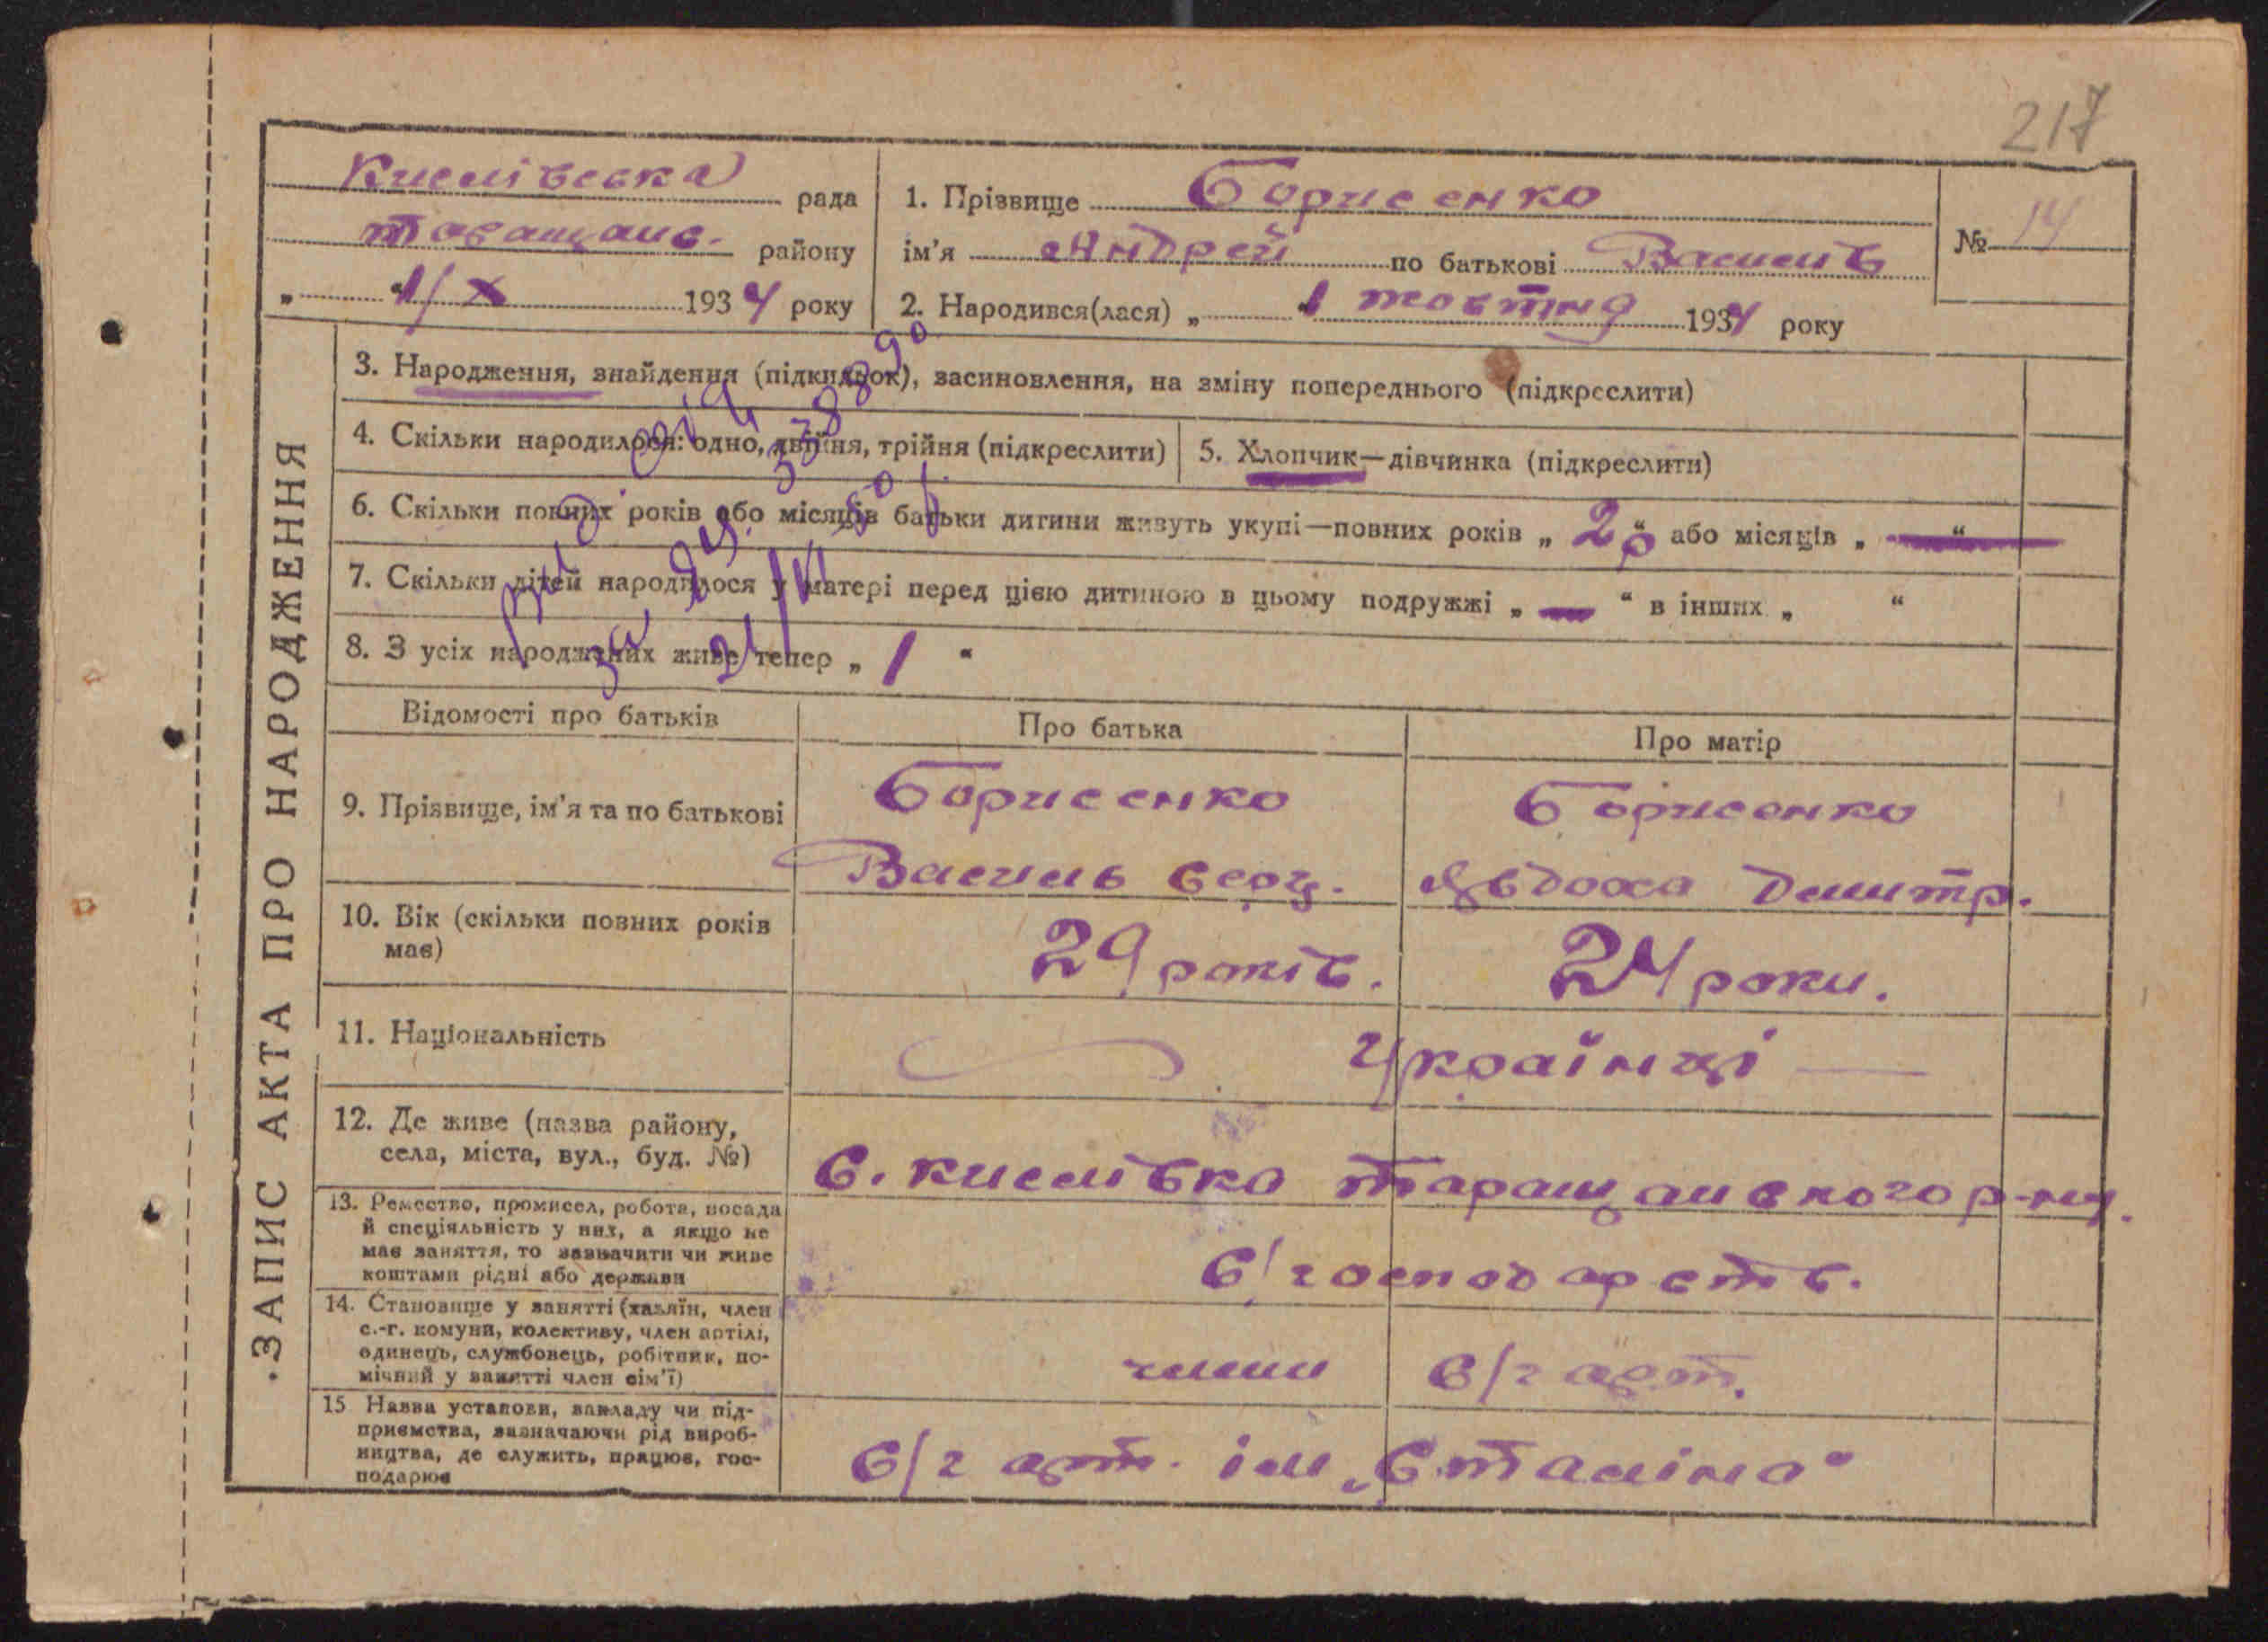 217
Кислівська рада
Таращанс. району
„ 1/X 1934 року
1. Прізвище Борисенко
ім'я Андрей по батькові Василів
№ 14
2. Народився(лася) „ 1 жовтня 1934 року
ЗАПИС АКТА ПРО НАРОДЖЕННЯ
3. Народження, знайдення (підкидьок), засиновлення, на зміну попереднього (підкреслити)
4. Скільки народилося: одно, двійня, трійня (підкреслити)
5. Хлопчик—дівчинка (підкреслити)
6. Скільки повних років або місяців батьки дитини живуть укупі—повних років „ 2 “ або місяців „ — “
7. Скільки дітей народилося у матері перед цією дитиною в цьому подружжі „ — “ в інших „ “
8. З усіх народжених живе тепер „ 1 “
Відомості про батьків
Про батька
Про матір
9. Прізвище, ім'я та по батькові
Борисенко
Василь
Борисенко
Явдоха Димитр.
10. Вік (скільки повних років має)
29 років.
24 роки.
11. Національність
Українці
12. Де живе (назва району, села, міста, вул., буд. №)
с. Кислівка Таращанського р-ну.
13. Ремество, промисел, робота, посада
й спеціяльність у них, а якщо не
має заняття, то зазначити чи живе
коштами рідні або держави
с/господарств.
14. Становище у занятті (хазяїн, член
с.-г. комуни, колективу, член артілі,
одинець, службовець, робітник, по-
мічний у занятті член сім'ї)
члени с/г арт.
15 Назва установи, закладу чи під-
приємства, зазначаючи рід вироб-
ництва, де служить, працює, гос-
подарює
с/г арт. ім „Сталіна“